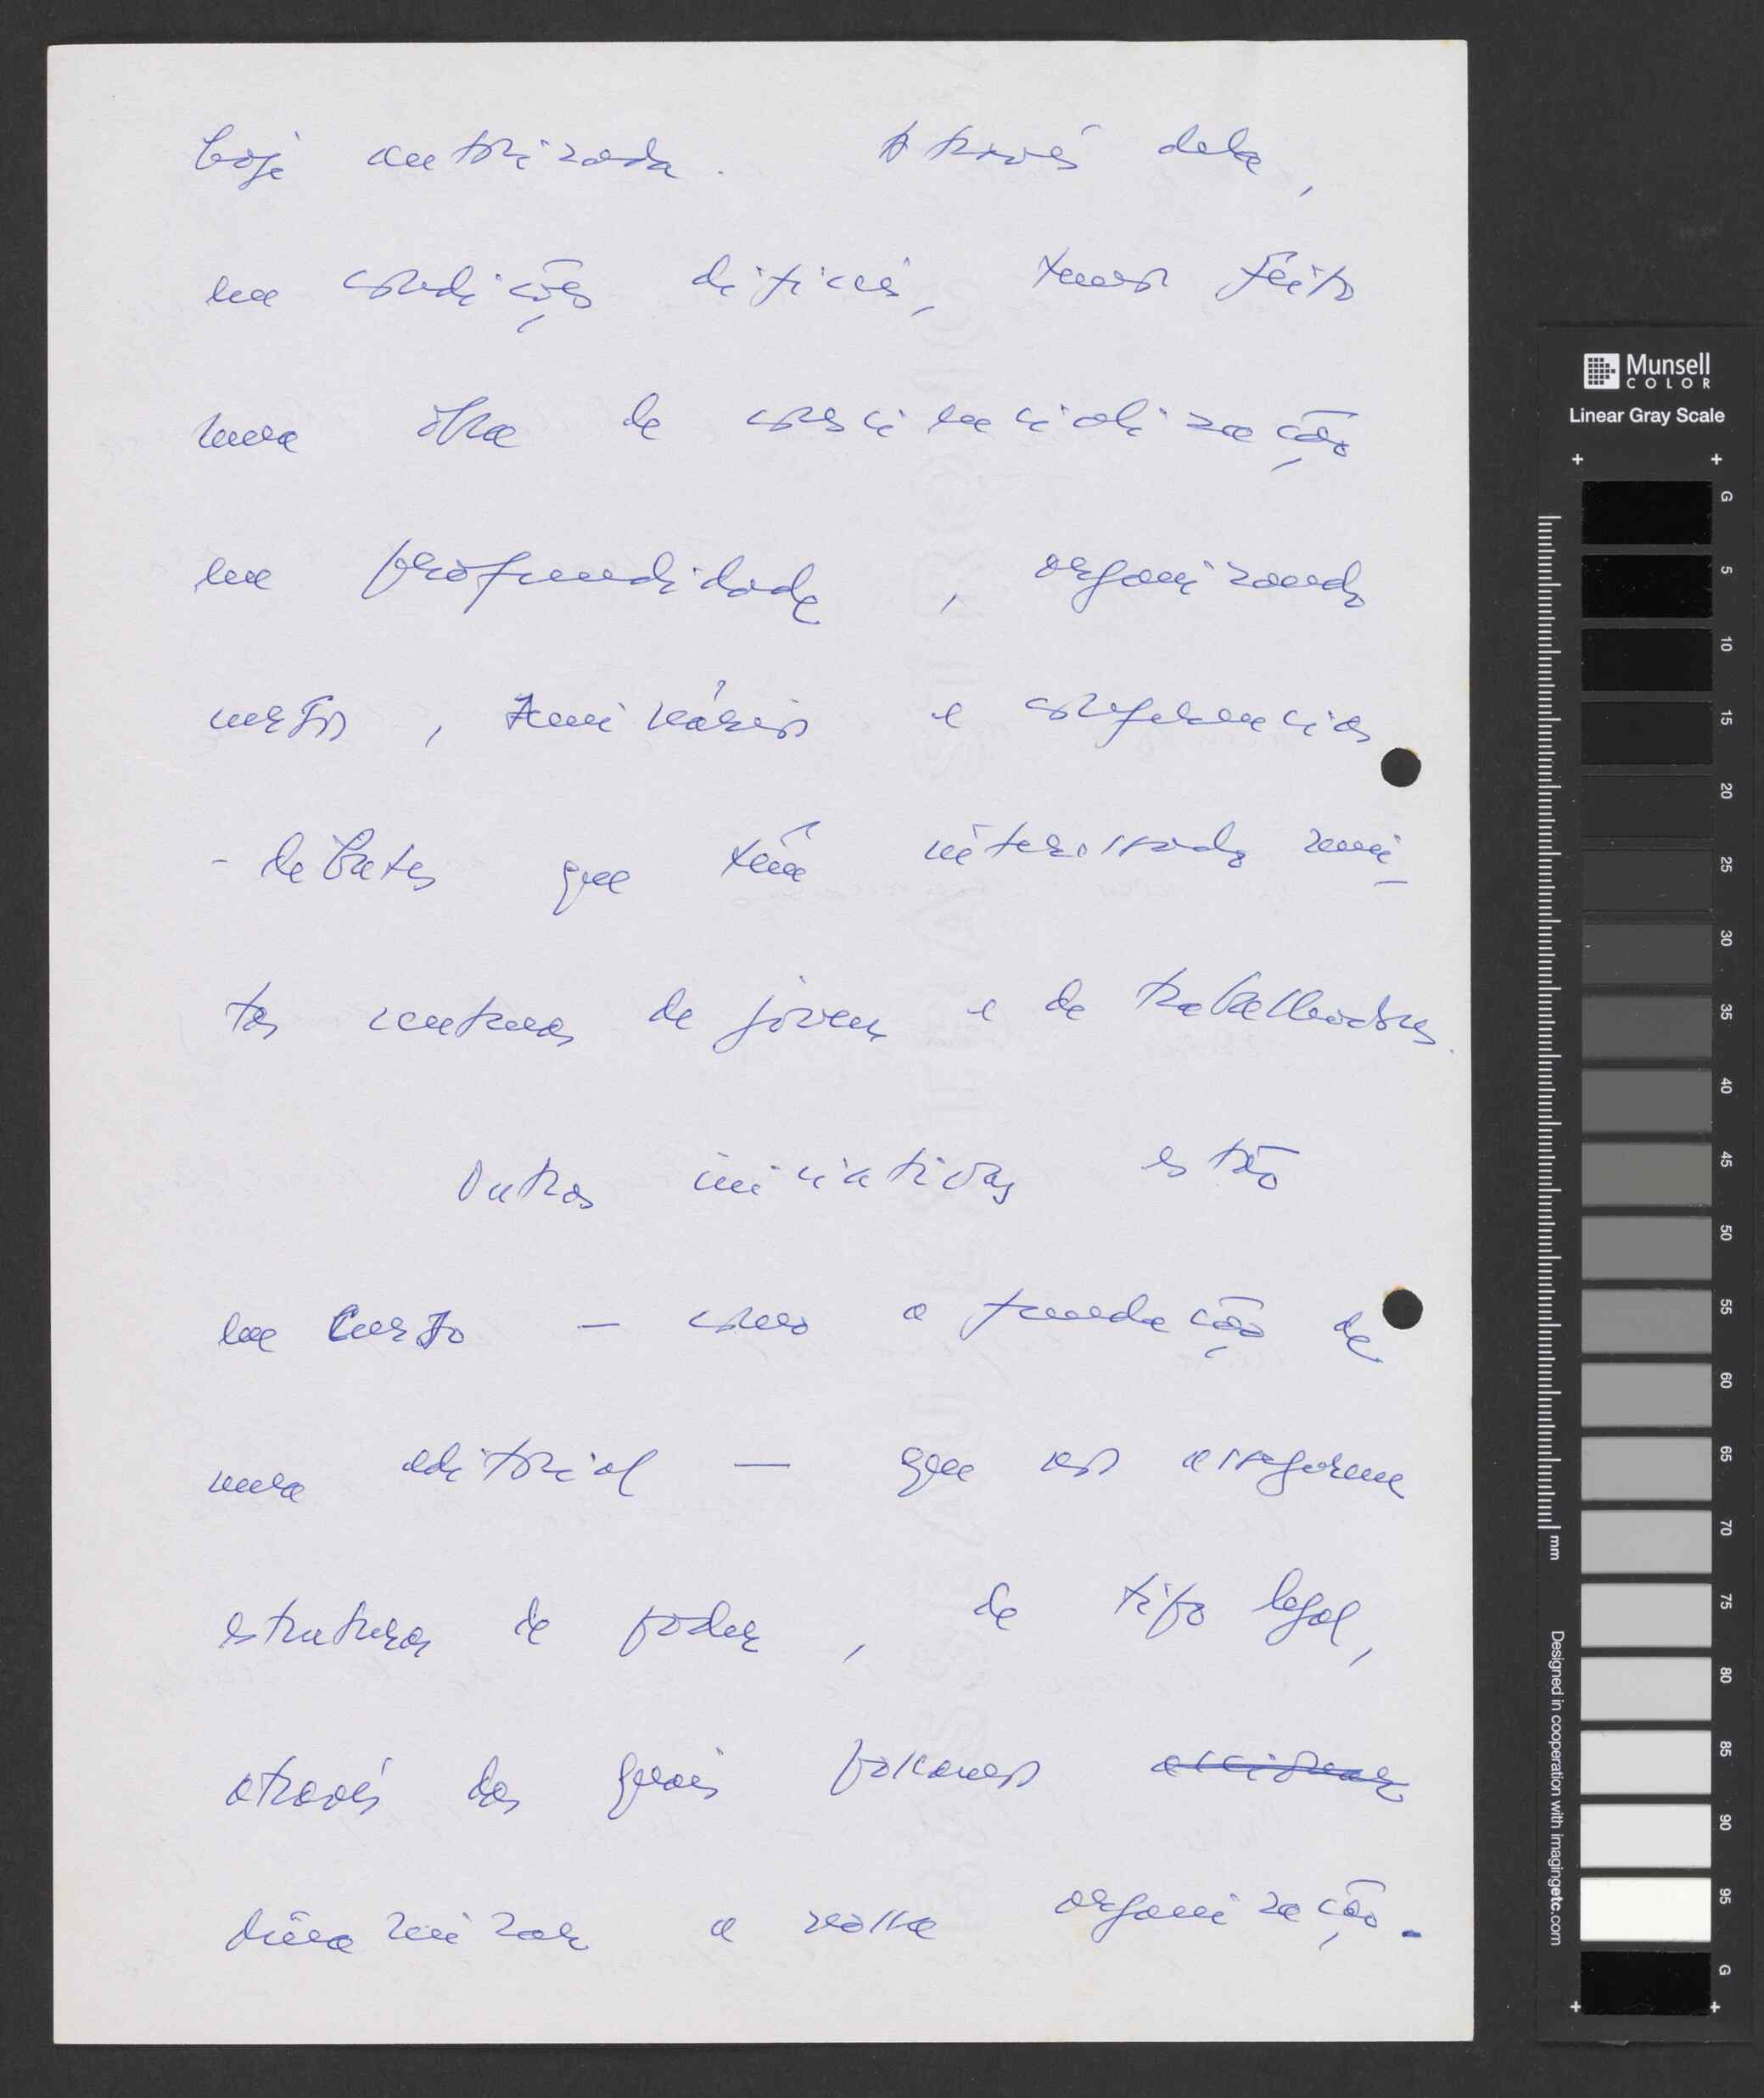 hoje autorizada. Através dela,
em condições dificeis, temos feito
uma obra de consciencialização
em profundidade, organizando
cursos, seminários e conferencias
- debates que têm interessado mui-
tas centenas de jovens e de trabalhadores.
Outras iniciativas estão
em curso — como a fundação de
uma editorial — que nos assegurem
estruturas de poder, de tipo legal,
através das quais possamos
dinamizar a nossa organização.
Munsell
COLOR
Linear Gray Scale
G
5
10
15
20
25
30
35
40
45
50
55
60
65
70
75
80
85
90
95
G
mm
Designed in cooperation with imagingetc.com